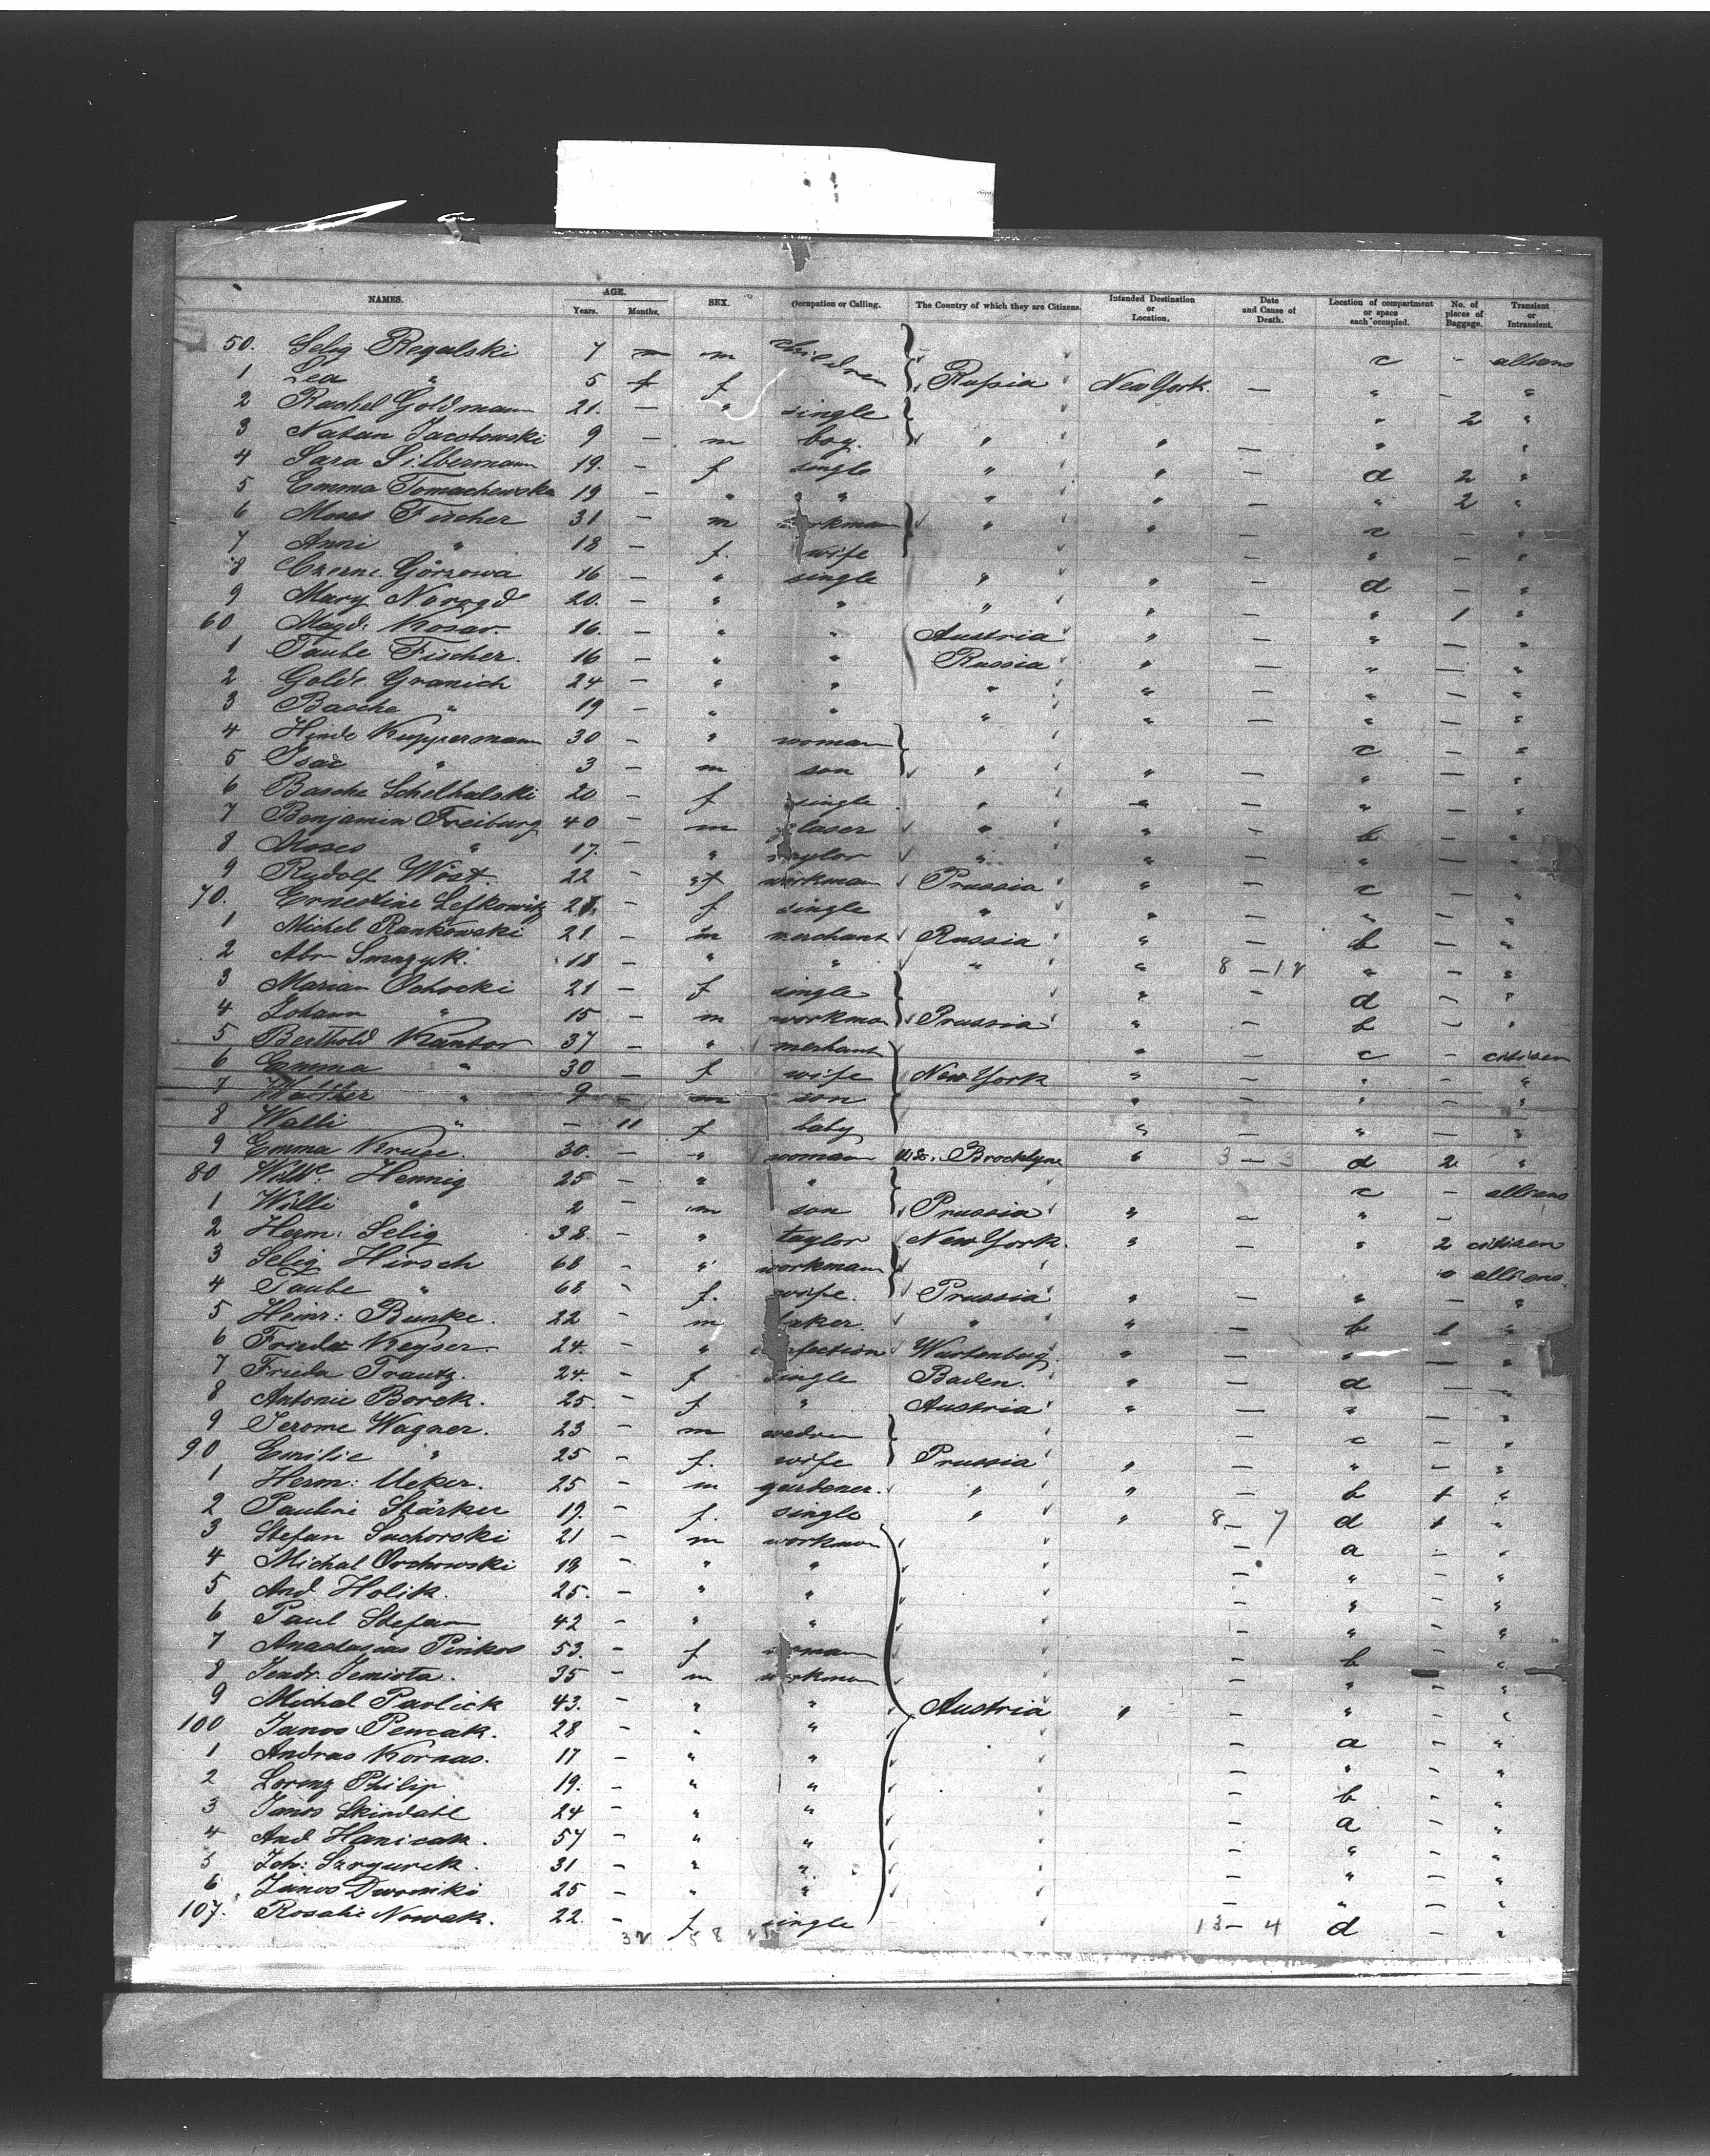 NAMES. AGE. Years. Months. SEX. Occupation or Calling. The Country of which they are Citizens. Intended Destination or Location. Date and Cause of Death. Location of compartment or space each occupied. No. of pieces of Baggage. Transient or Intransient.
50. Selig Regulski 7 m children c - alliens
1 Lea " 5 f Russia New York — " - "
2 Rachel Goldmann 21. — " single " 2 "
3 Natan Jacobowski 9 — m boy. " " — " "
4 Sara Silbermann 19. — f single " " — d 2 "
5 Emma Tomachewska 19 — " " " " — " 2 "
6 Moses Fischer 31 — m workman " " — c - "
7 Anni " 18 — f. wife — " — "
8 Czerne Görzowa 16 — " single " " — d — "
9 Mary Norozd 20. — " " " " — " 1 "
60 Magd: Kosar. 16. — " " Austria " — " — "
1 Taube Fischer. 16 — " " Russia " — " — "
2 Golde Granich 24 — " " " " — " — "
3 Basche " 19 — " " " " — " — "
4 Hinde Kuppermann 30 — " woman c — "
5 Isac " 3 — m son " " — " — "
6 Basche Schelhalski 20 - f single " " — " — "
7 Benjamin Freiburg 40 - m glaser " " — b — "
8 Moses " 17. - " taylor " " — " — "
9 Rudolf Wöst. 22 - workman Prussia " — c — "
70. Ernestine Lefkowitz - f single " " — " — "
1 Michel Rankowski 21 - m merchant Russia " — b — "
2 Abr Smazyk. 18 — " " " " 8 — 18 " — "
3 Marian Ochocki 21 — f single " - d — "
4 Johann " 15 — m workma Prussia " — b — "
5 Berthold Kantor 37 — " merchant " — c — citizen
6 Emma " 30 — f wife New York " — " — "
7 Walter " 9 — m son " — " — "
8 Walli " — 11 f baby " — " — "
9 Emma Kruse. 30. — " woman U.S. Brocklyn " 3 — 3 d 2 "
80 Wilh. Hennig 25 — " " c - alliens
1 Willi " 2 - m son Prussia " — " —
2 Herm: Selig 38. - " taylor New York. " — " 2 citizen
3 Selig Hirsch 68 - " workmann " alliens.
4 Taube " 68 - f. wife. Prussia " — " — "
5 Heinr: Bunke. 22 - m baker. " " — b 1 "
6 Keyser. 24. - " confection Wurtenberg. " — " — "
7 Frieda Trautz. 24. - f single Baden. " — d — "
8 Antonie Borck. 25. - f " Austria " — " — "
9 Jerome Wagner. 23 - m — c — "
90 Emilie " 25 - f. wife Prussia " — " — "
1 Herm: Ueker. 25 - m gardener. " " — b 1 "
2 Pauline Stärker 19. - f. single " " 8 — 7 d 1 "
3 Stefan Suchorski 21 - m workman — a - "
4 Michal Orchowski - " " — " - "
5 And. Holik. 25. - " " — " - "
6 Paul Stefan 42 - " " — " - "
7 Anastasias Pinkos 53. - f woman — b - "
8 Jendr. Jemiota. 35 - m workman - " - "
9 Michal Pavlick 43. - " " Austria " — " - "
100 Janos Pencak. 28 - " " — a - "
1 Andras Kornas. 17 - " " — " - "
2 Lorenz Philip 19. - " " — b - "
3 Janos Skindahl 24 - " " — a - "
4 And. Hanicak. 57 - " " — " - "
5 Joh: Szrgurek. 31 - " " — " - "
6 Janos Dworniki 25 - " " — " - "
107. Rosalie Nowak. 22. - f single 13 — 4 d — "
58